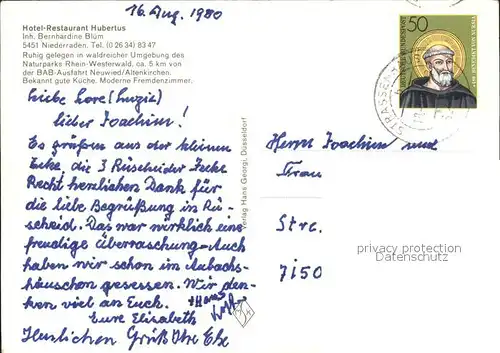 16. Aug. 1980
Hotel-Restaurant Hubertus
Inh. Bernhardine Blüm
5451 Niederraden. Tel. (0 26 34) 83 47
Ruhig gelegen in waldreicher Umgebung des
Naturparks Rhein-Westerwald, ca. 5 km von
der BAB-Ausfahrt Neuwied/Altenkirchen.
Bekannt gute Küche. Moderne Fremdenzimmer.
Liebe Lore (Luzie)
Lieber Joachim!
Es grüßen aus der kleinen
Ecke, die 3 Rüscheider Jecke
Recht herzlichen Dank für
die liebe Begrüßung in Rü-
scheid. Das war wirklich eine
freudige Überraschung. Auch
haben wir schon im Aubachs-
häuschen gesessen. Wir den-
ken viel an Euch. + Hans
Eure Elisabeth
Herzlichen Gruß Ihre Ehe
Verlag Hans Georgi, Düsseldorf
50
DEUTSCHE BUNDESPOST
STRASSENH
Herrn Joachim und
Frau
Str.
7150
privacy protection
Datenschutz